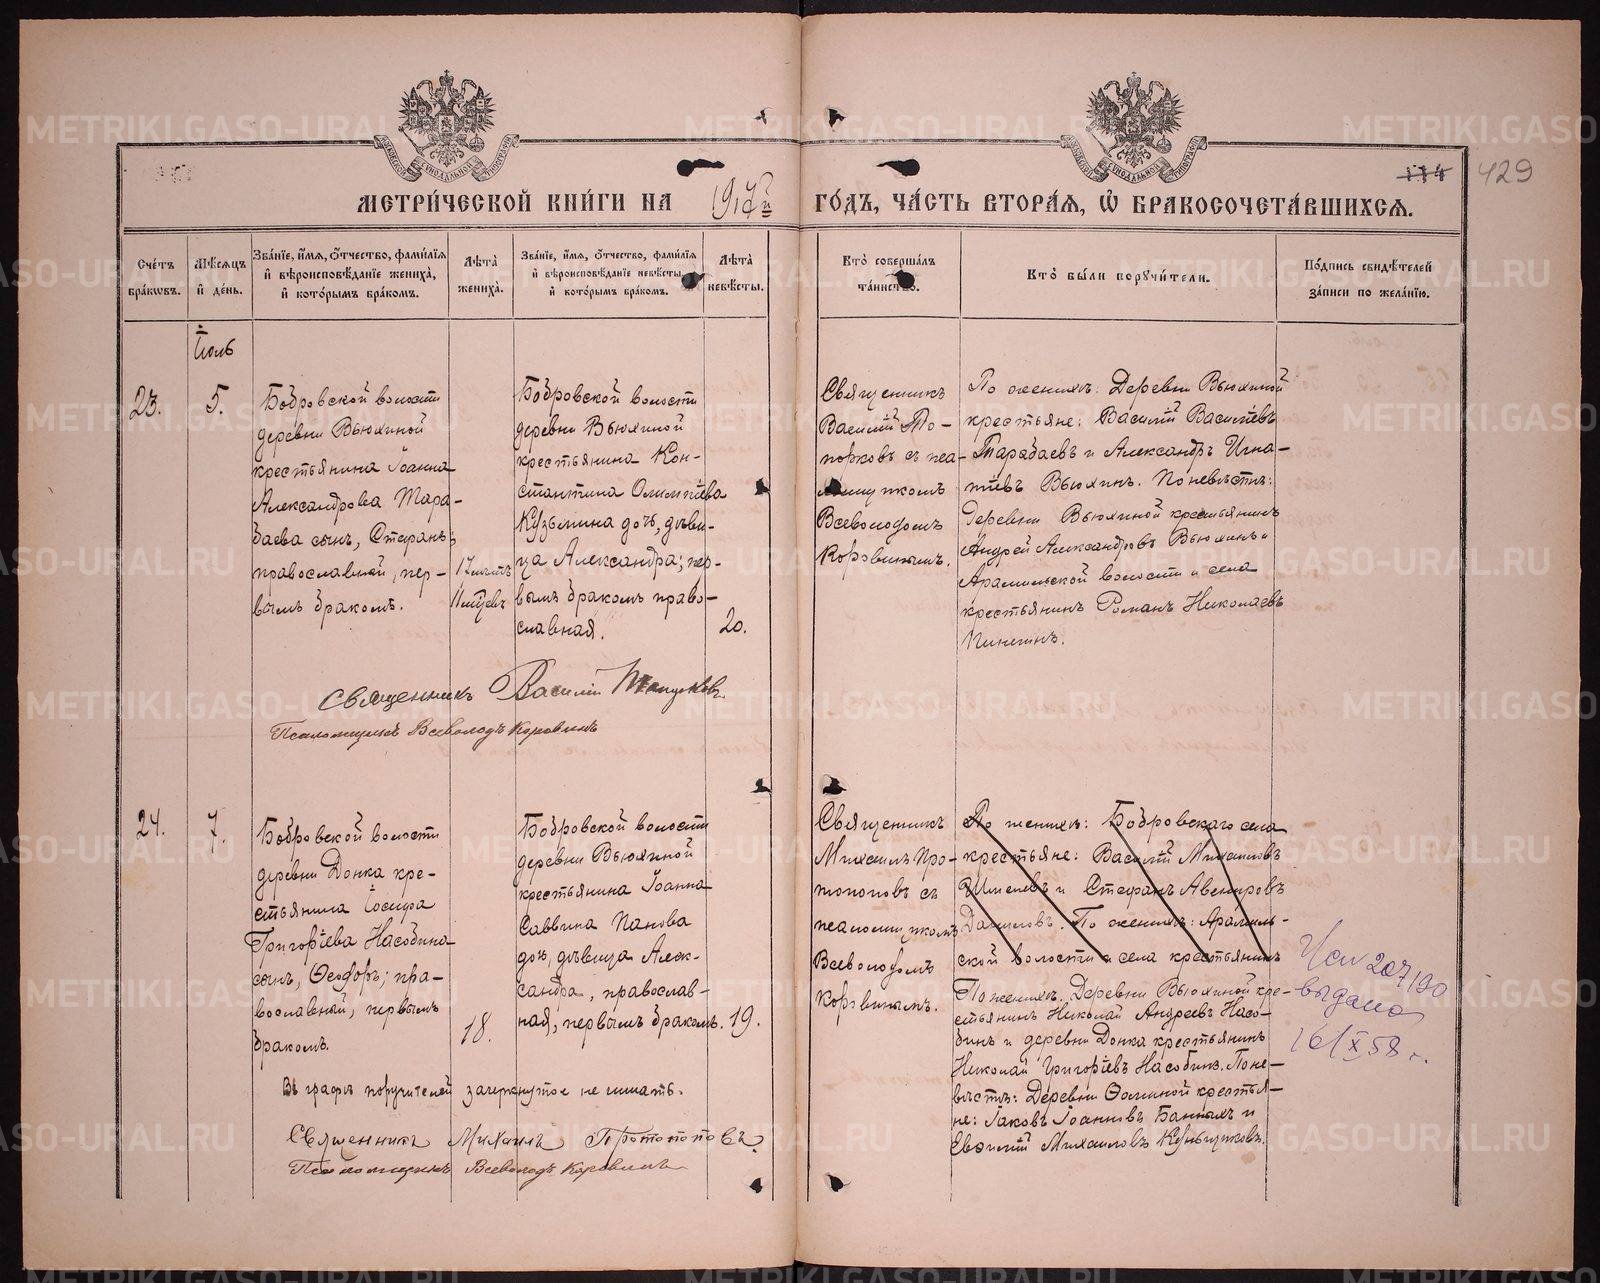 МЕТРИ́ЧЕСКОЙ КНИ́ГИ НА 1917й ГО́ДЪ, ЧА́СТЬ ВТОРА́Я, Ѡ БРАКОСОЧЕТА́ВШИХСЯ.
114 429
Сче́тъ бра́кѡвъ.
Мѣ́сяцъ и҆ де́нь.
Зва́нїе, и҆́мя, ѻ҆́тчество, фами́лїя и҆ вѣроисповѣ́данїе жениха̀, и҆ кото́рымъ бра́комъ.
Лѣ́та жениха̀.
Зва́нїе, и҆́мя, ѻ҆́тчество, фами́лїя и҆ вѣроисповѣ́данїе невѣ́сты, и҆ кото́рымъ бра́комъ.
Лѣ́та невѣ́сты.
Кто̀ соверша́лъ та́инство.
Кто̀ бы́ли порꙋчи́тели.
По́дпись свидѣ́телей за́писи по жела́нїю.
Іюль
23.
5.
Бобровской волости
деревни Вьюхиной
крестьянина Іоанна
Александрова Тара-
баева сынъ, Стефанъ;
православный, пер-
вымъ бракомъ.
17лѣтъ
11мѣсяц
Бобровской волости
деревни Вьюхиной
крестьянина Кон-
стантина Олимпіева
Кузьмина дочь, дѣви-
ца Александра; пер-
вымъ бракомъ право-
славная.
20.
Священникъ
Василій По-
порковъ съ пса-
ломщикомъ
Всеволодомъ
Коровинымъ.
По женихѣ: Деревни Вьюхиной
крестьяне: Василій Васильевъ
Тарабаевъ и Александръ Игна-
тьевъ Вьюхинъ. По невѣстѣ:
Деревни Вьюхиной крестьянинъ
Андрей Александровъ Вьюхинъ и
Арамильской волости и села
крестьянинъ Романъ Николаевъ
Священникъ Василій
Псаломщикъ Всеволодъ Коровинъ
24.
7.
Бобровской волости
деревни Донка кре-
стьянина Іосифа
Григорьева Насобина
сынъ, Ѳеодоръ; пра-
вославный, первымъ
бракомъ.
18.
Бобровской волости
деревни Вьюхиной
крестьянина Іоанна
Саввина Панова
дочь, дѣвица Алек-
сандра, православ-
ная, первымъ бракомъ.
19.
Священникъ
Михаилъ Про-
топоповъ съ
псаломщикомъ
Всеволодомъ
Коровинымъ.
По женихѣ: Бобровскаго села
крестьяне: Василій Михаиловъ
Шмелевъ и Стефанъ Авенировъ
Даниловъ. По женихѣ: Арамиль-
ской волости и села крестьянинъ
По женихѣ: Деревни Вьюхиной кре-
стьянинъ Николай Андреевъ Насо-
бинъ и деревни Донка крестьянинъ
Николай Григорьевъ Насобинъ. По не-
вѣстѣ: Деревни Ѳоминой крестья-
не: Іаковъ Іоанновъ Банныхъ и
Евгеній Михаиловъ
207/90
выдана
16/X 58 г.
Въ графѣ поручителей зачеркнутое не читать.
Священникъ Михаилъ Протопоповъ
Псаломщикъ Всеволодъ Коровинъ
METRIKI.GASO-URAL.RU